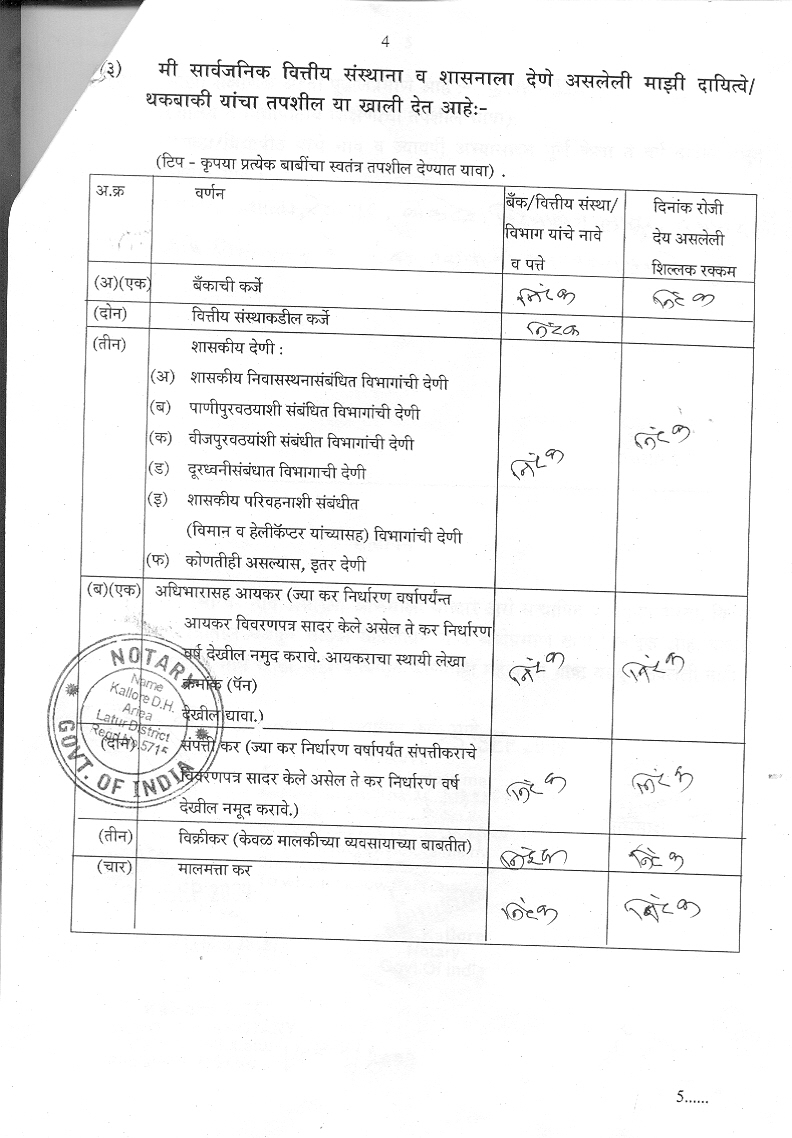 4
(३) मी सार्वजनिक वित्तीय संस्थाना व शासनाला देणे असलेली माझी दायित्वे/
थकबाकी यांचा तपशील या खाली देत आहेः-
(टिप - कृपया प्रत्येक बाबींचा स्वतंत्र तपशील देण्यात यावा) .
अ.क्र वर्णन बँक/वित्तीय संस्था/ दिनांक रोजी
विभाग यांचे नावे देय असलेली
व पत्ते शिल्लक रक्कम
(अ)(एक) बँकाची कर्जे निरंक निरंक
(दोन) वित्तीय संस्थाकडील कर्जे निरंक
(तीन) शासकीय देणी :
(अ) शासकीय निवासस्थनासंबंधित विभागांची देणी
(ब) पाणीपुरवठयाशी संबंधित विभागांची देणी
(क) वीजपुरवठयांशी संबंधीत विभागांची देणी निरंक
(ड) दूरध्वनीसंबंधात विभागाची देणी निरंक
(इ) शासकीय परिवहनाशी संबंधीत
(विमान व हेलीकॅप्टर यांच्यासह) विभागांची देणी
(फ) कोणतीही असल्यास, इतर देणी
(ब)(एक) अधिभारासह आयकर (ज्या कर निर्धारण वर्षापर्यंन्त
आयकर विवरणपत्र सादर केले असेल ते कर निर्धारण
वर्ष देखील नमुद करावे. आयकराचा स्थायी लेखा निरंक निरंक
क्रमांक (पॅन)
देखील द्यावा.)
(दोन) संपत्ती कर (ज्या कर निर्धारण वर्षापर्यंत संपत्तीकराचे
विवरणपत्र सादर केले असेल ते कर निर्धारण वर्ष निरंक निरंक
देखील नमूद करावे.)
(तीन) विक्रीकर (केवळ मालकीच्या व्यवसायाच्या बाबतीत) निरंक निरंक
(चार) मालमत्ता कर निरंक निरंक
NOTARY
Name
Kallore D.H.
Area
Latur District
Regd No. 5715
GOVT. OF INDIA
5......